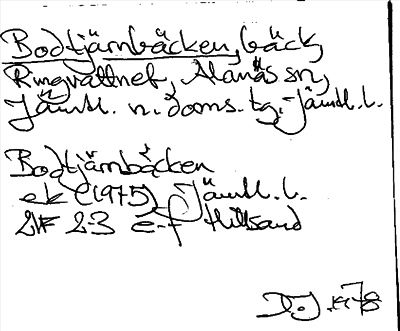 Bodtjärnbäcken, bäck,
Ringvattnet, Alanäs sn,
Jämtl. n. doms. tg. Jämtl. l.
Bodtjärnbäcken
ek (1975) Jämtl. l.
21F 2-3 e-f Hillsand